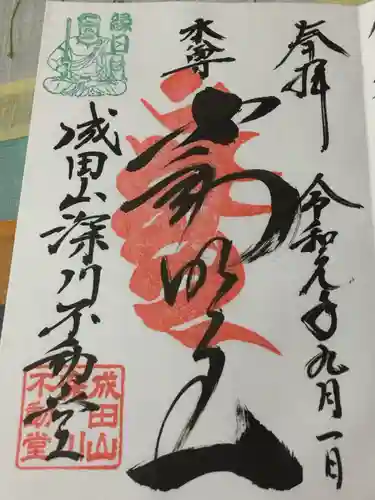 奉拝
令和元年九月一日
本尊
不動明王
成田山深川不動堂
縁日
成田山
深川
不動堂